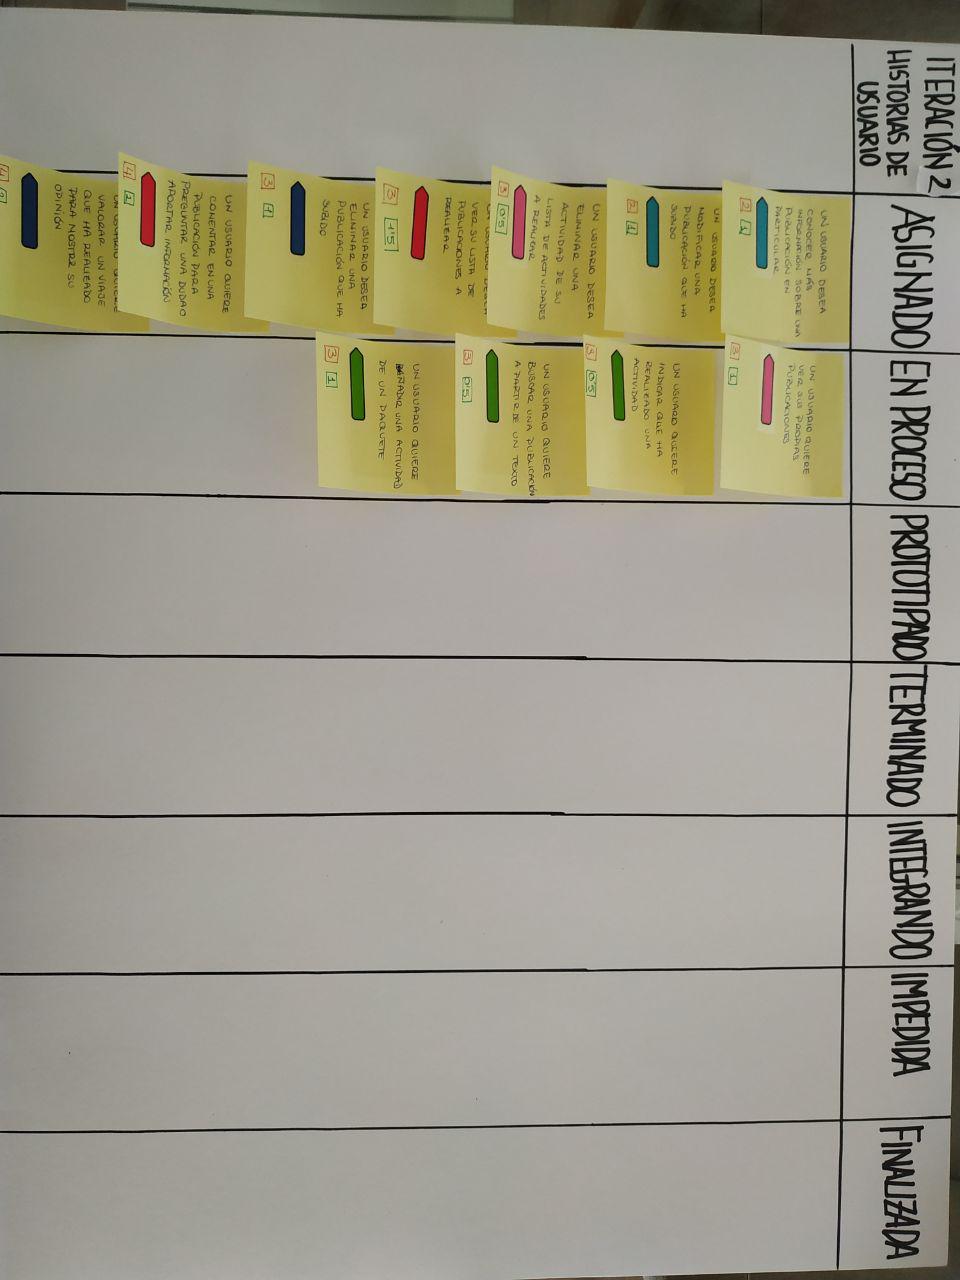 ITERACIÓN 2
HISTORIAS DE
USUARIO
ASIGNADO
EN PROCESO
PROTOTIPADO
TERMINADO
INTEGRANDO
IMPEDIDA
FINALIZADA
UN USUARIO DESEA
CONOCER MÁS
INFORMACIÓN SOBRE UNA
PUBLICACIÓN EN
PARTICULAR
2 1
UN USUARIO DESEA
MODIFICAR UNA
PUBLICACIÓN QUE HA
SUBIDO
2 1
UN USUARIO DESEA
ELIMINAR UNA
ACTIVIDAD DE SU
LISTA DE ACTIVIDADES
A REALIZAR
3 0'5
UN USUARIO DESEA
VER SU LISTA DE
PUBLICACIONES A
REALIZAR
3 1'5
UN USUARIO DESEA
ELIMINAR UNA
PUBLICACIÓN QUE HA
SUBIDO
3 1
UN USUARIO QUIERE
COMENTAR EN UNA
PUBLICACIÓN PARA
PREGUNTAR UNA DUDA O
APORTAR INFORMACIÓN
4 2
UN USUARIO QUIERE
VALORAR UN VIAJE
QUE HA REALIZADO
PARA MOSTRAR SU
OPINIÓN
4
UN USUARIO QUIERE
VER SUS PROPIAS
PUBLICACIONES
3 1
UN USUARIO QUIERE
INDICAR QUE HA
REALIZADO UNA
ACTIVIDAD
3 0'5
UN USUARIO QUIERE
BUSCAR UNA PUBLICACIÓN
A PARTIR DE UN TEXTO
3 0'5
UN USUARIO QUIERE
AÑADIR UNA ACTIVIDAD
DE UN PAQUETE
3 1